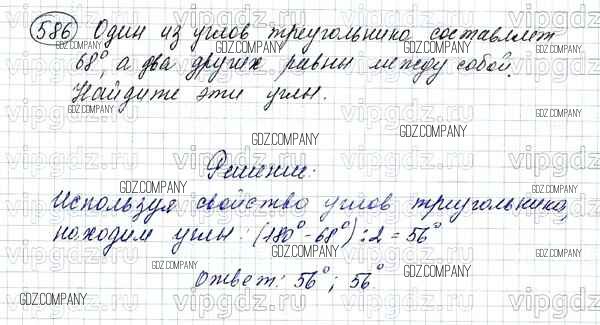 586 Один из углов треугольника составляет
68°, а два других равны между собой.
Найдите эти углы.
Решение:
Используя свойство углов треугольника,
находим углы: (180° - 68°) : 2 = 56°
Ответ: 56°; 56°
GDZ.COMPANY
vipgdz.ru